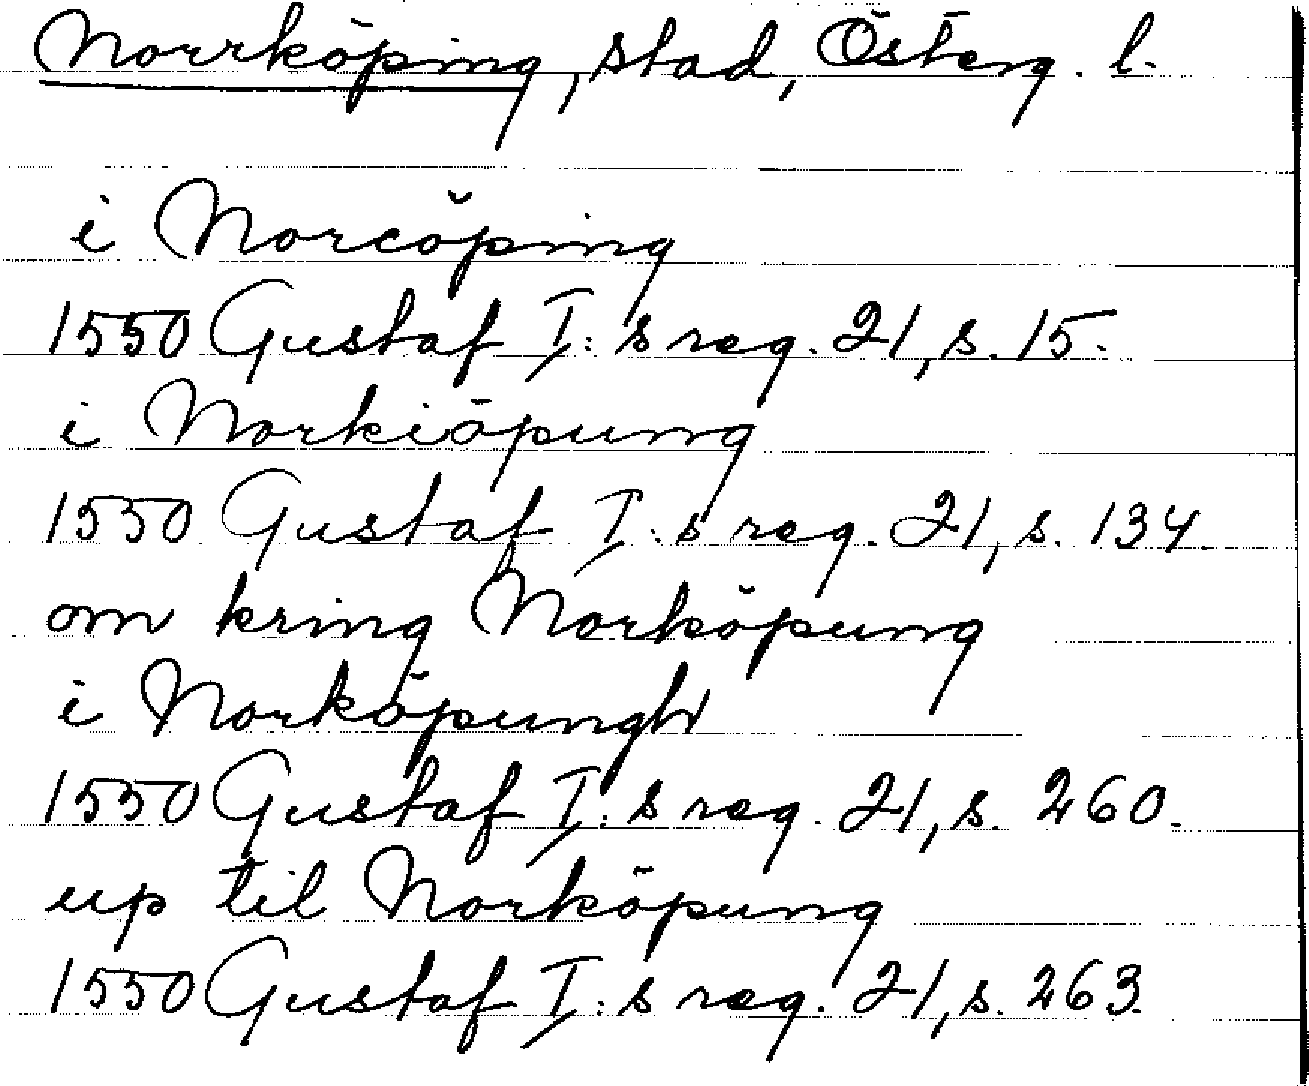 Norrköping, stad, Österg. l.
i Norcöping
1550 Gustaf I:s reg. 21, s. 15.
i Norkiöpung
1550 Gustaf I:s reg. 21, s. 134.
om kring Norköpung
i Norköpungh
1550 Gustaf I:s reg. 21, s. 260.
up til Norköpung
1550 Gustaf I:s reg. 21, s. 263.